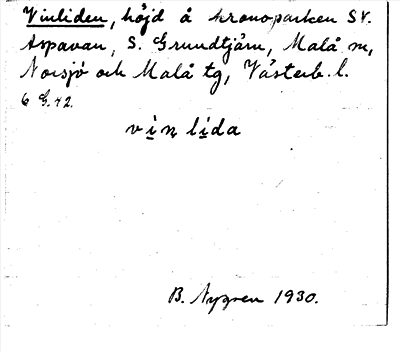 Vinliden, höjd å kronoparken SV.
Aspavan, S. Grundtjärn, Malå sn,
Norsjö och Malå tg, Västerb. l.
6 G. 42.
vin lida
B. Nygren 1930.